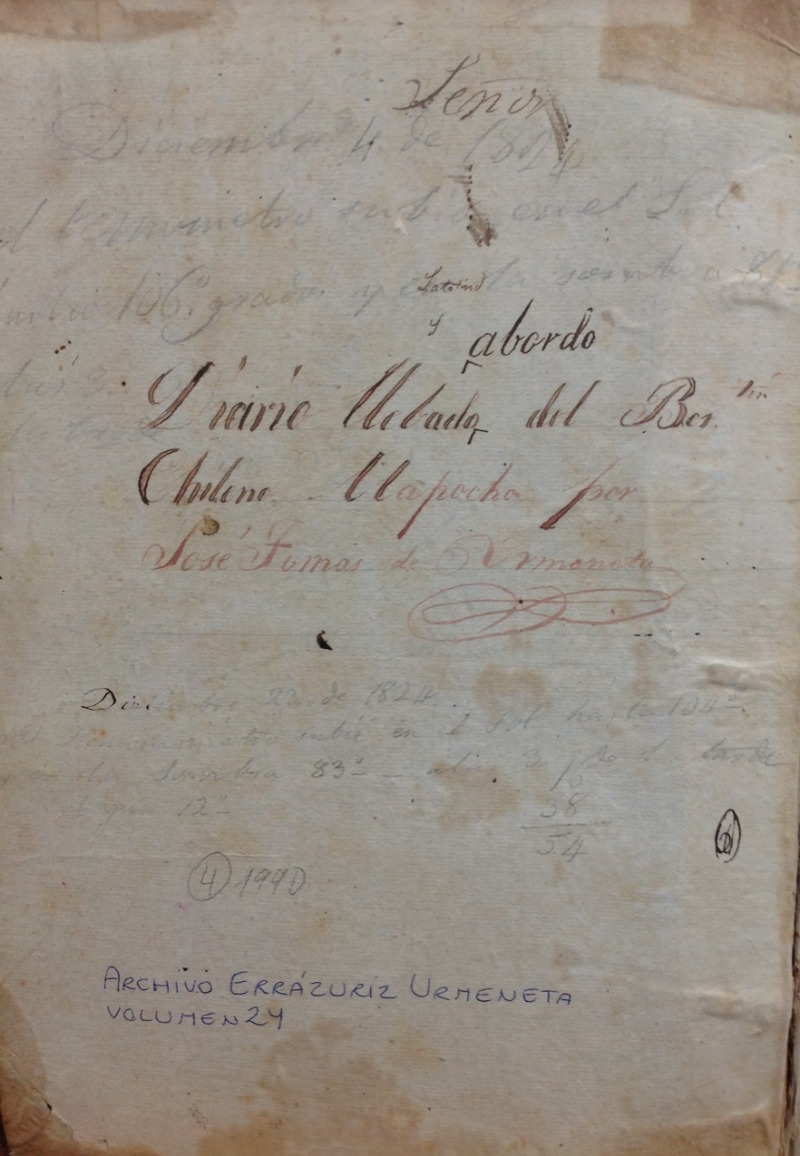 Señor
Diciembre 4 de 1824
Termometro subio en el Sol
106° grados y
y
abordo
Diario llebado del Ber.tin
Chileno Mapocho por
José Tomas de Urmeneta
Diciembre 22 de 1824
subio en el Sol hasta 104°
Sombra 83° 3 de la tarde
12°
16
38
54
4 1990
ARCHIVO ERRÁZURIZ URMENETA
VOLUMEN 24